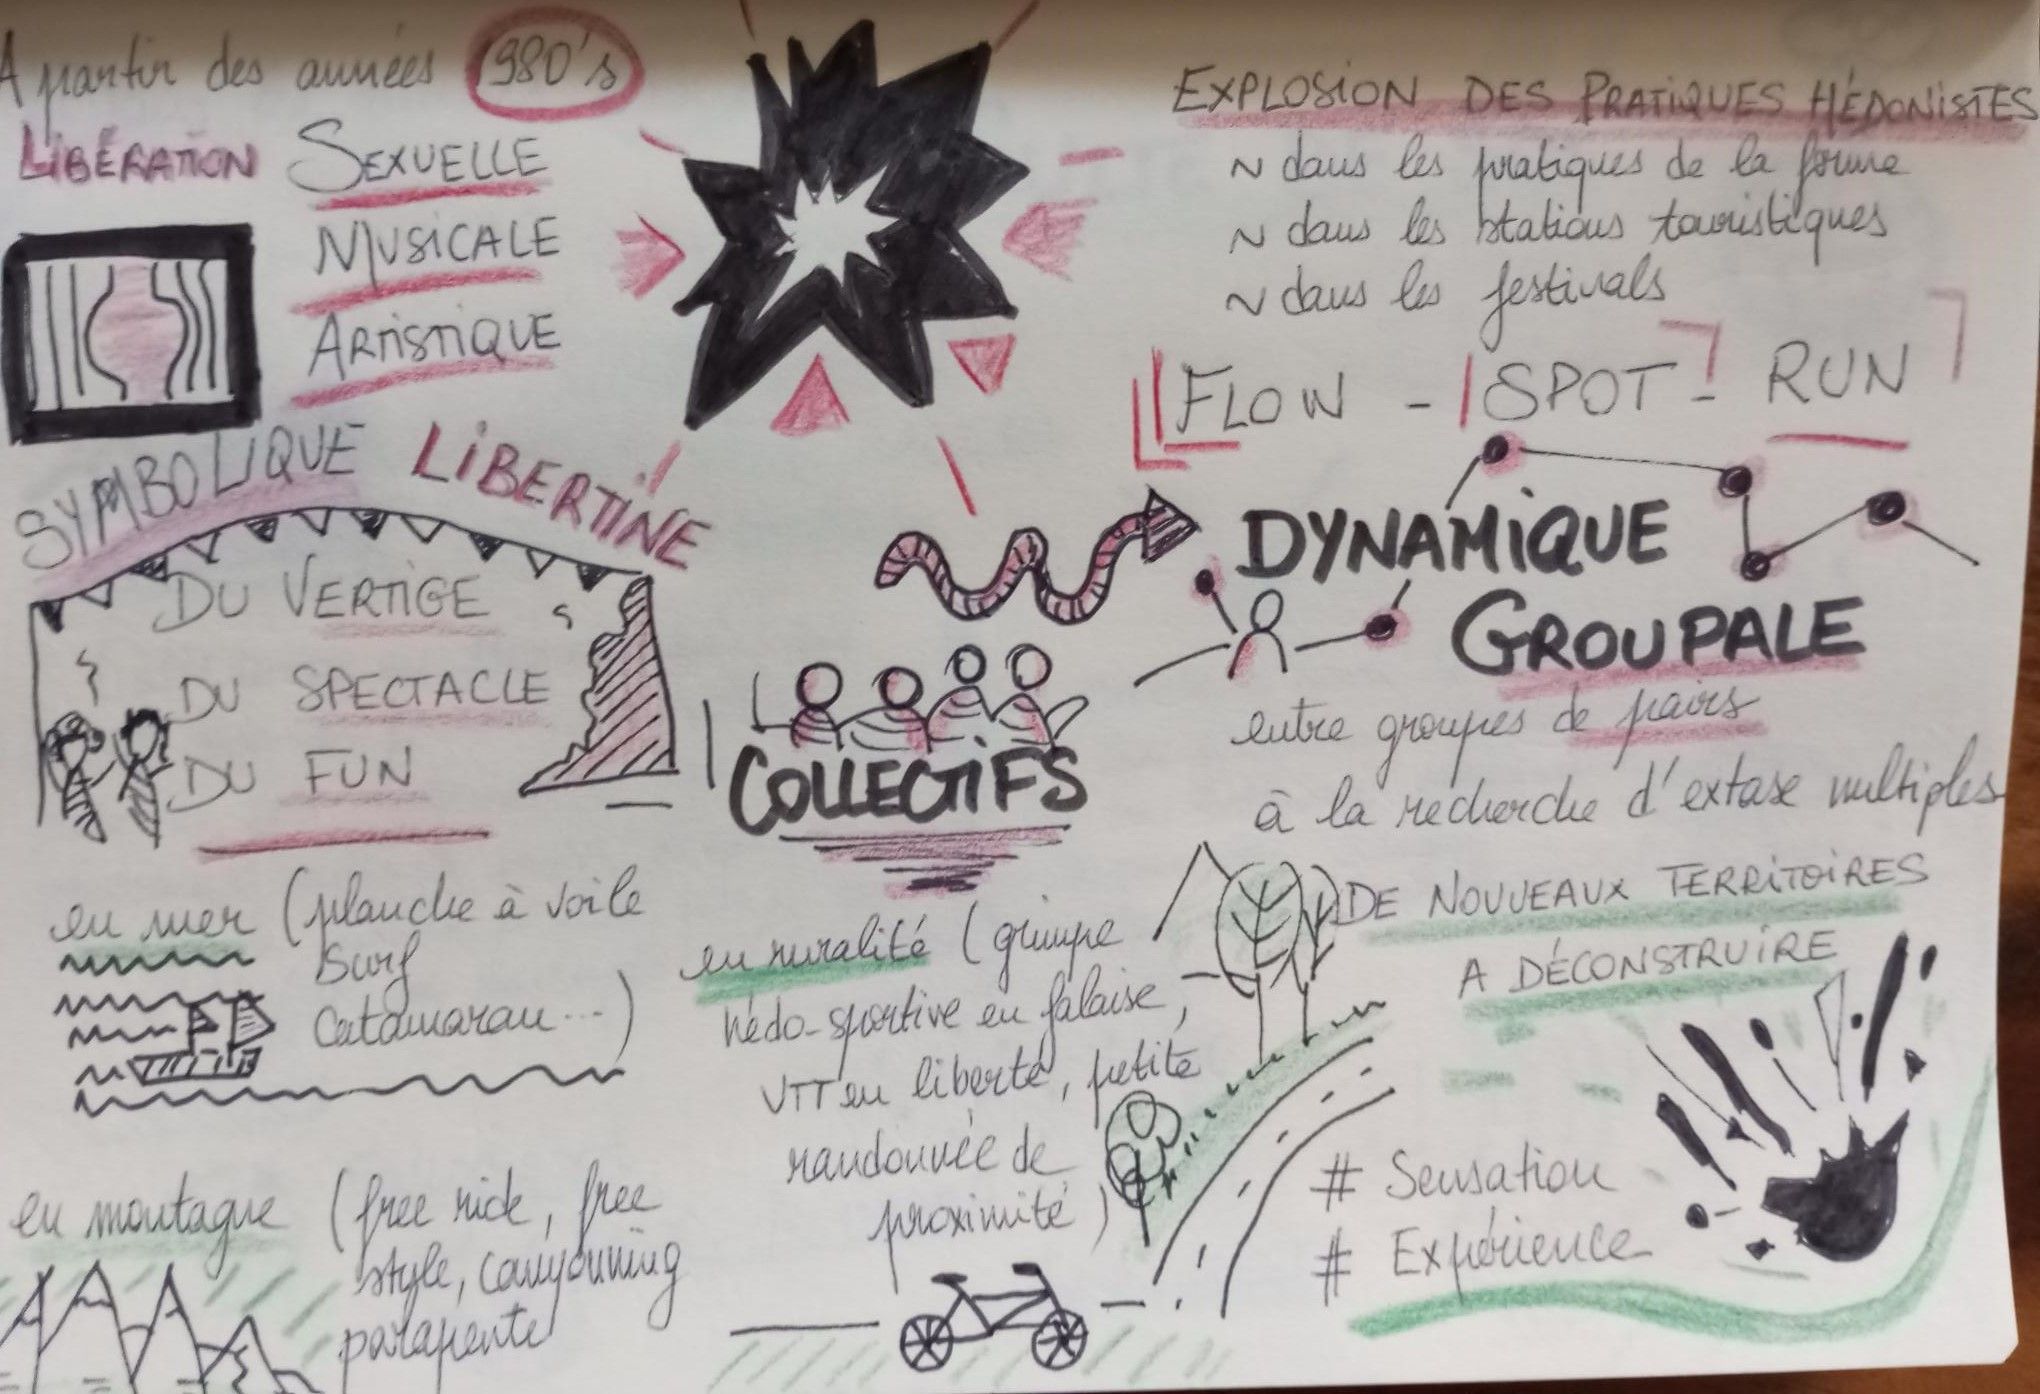 A partir des années 1980's
LIBÉRATION SEXUELLE
MUSICALE
ARTISTIQUE
EXPLOSION DES PRATIQUES HÉDONISTES
~ dans les pratiques de la forme
~ dans les stations touristiques
~ dans les festivals
FLOW - SPOT - RUN
SYMBOLIQUE LIBERTINE
DU VERTIGE
DU SPECTACLE
DU FUN
COLLECTIFS
DYNAMIQUE
GROUPALE
entre groupes de pairs
à la recherche d'extase multiples
en mer (planche à voile
Surf
Catamaran...)
en montagne (free ride, free
style, canyonning
parapente
en ruralité (grimpe
hédo-sportive en falaise,
VTT en liberté, petite
randonnée de
proximité)
DE NOUVEAUX TERRITOIRES
A DÉCONSTRUIRE
# Sensation
# Expérience